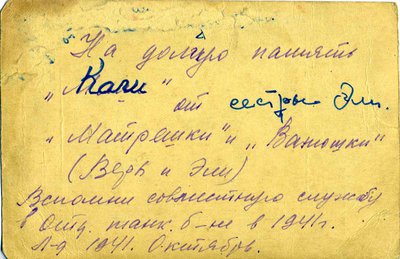 На долгую память
„Кати“
от сестры Эли.
„Матрешки“ и „Ванюшки“
(Веры и Эли)
Вспомни совместную службу
в Отд. танк. б-не в 1941г.
Л-д 1941. Октябрь.